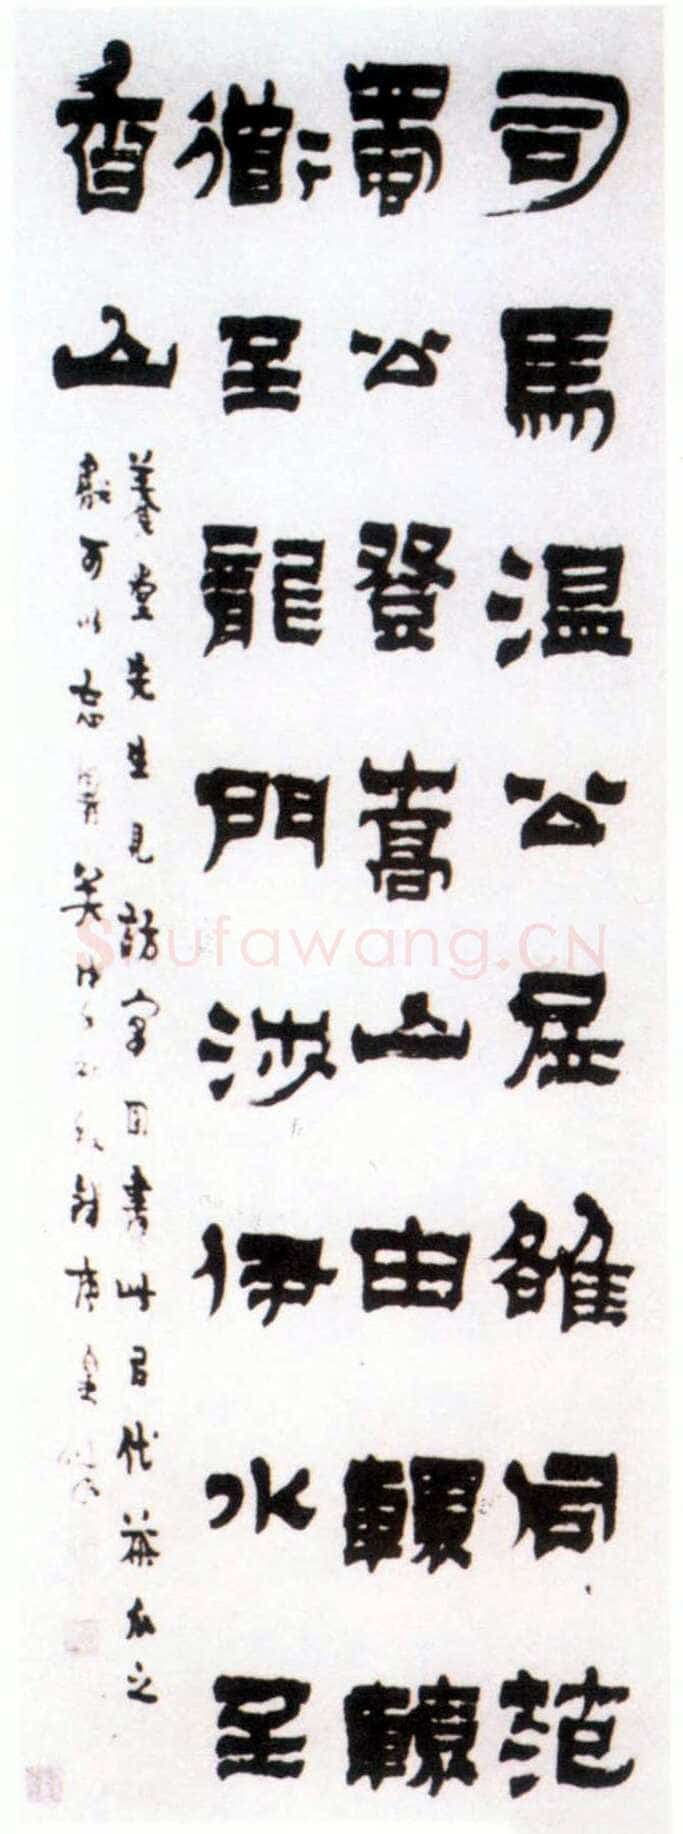 司馬溫公居雒同范
蜀公登嵩山由轘轅
衜至龍門涉伊水至
香山
養堂先生見訪寓書此㠯代茶瓜之
獻可以
Shufawang.CN